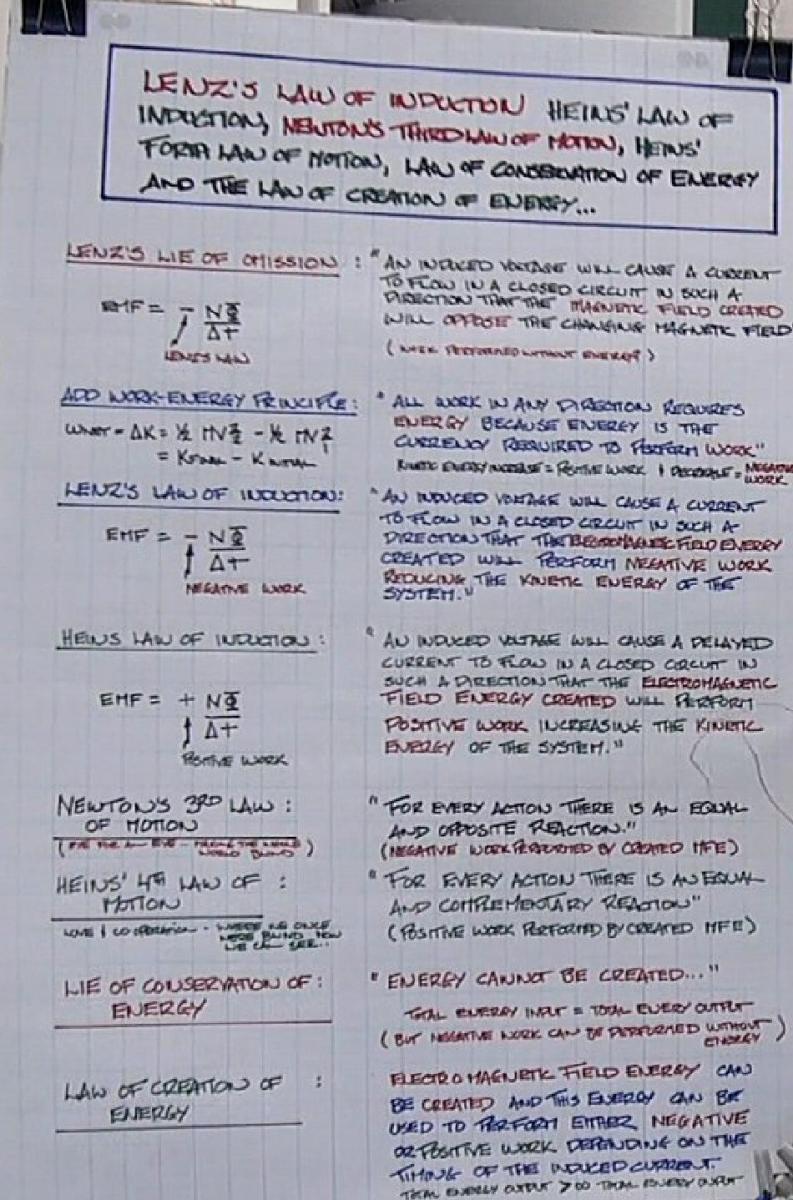 LENZ'S LAW OF INDUCTION HEINS' LAW OF
INDUCTION, NEWTON'S THIRD LAW OF MOTION, HEINS'
FORTH LAW OF MOTION, LAW OF CONSERVATION OF ENERGY
AND THE LAW OF CREATION OF ENERGY...
LENZ'S LIE OF OMISSION : "AN INDUCED VOLTAGE WILL CAUSE A CURRENT
TO FLOW IN A CLOSED CIRCUIT IN SUCH A
DIRECTION THAT THE MAGNETIC FIELD CREATED
WILL OPPOSE THE CHANGING MAGNETIC FIELD
(WORK PERFORMED WITHOUT ENERGY?)
EMF = - NΦ
Δt
LENZ'S LAW
ADD WORK-ENERGY PRINCIPLE: "ALL WORK IN ANY DIRECTION REQUIRES
ENERGY BECAUSE ENERGY IS THE
CURRENCY REQUIRED TO PERFORM WORK"
KINETIC ENERGY INCREASE = POSITIVE WORK & DECREASE = NEGATIVE
WORK
WNET = ΔK = ½ MV²₂ - ½ MV²₁
= KFINAL - KINITIAL
LENZ'S LAW OF INDUCTION: "AN INDUCED VOLTAGE WILL CAUSE A CURRENT
TO FLOW IN A CLOSED CIRCUIT IN SUCH A
DIRECTION THAT THE ELECTROMAGNETIC FIELD ENERGY
CREATED WILL PERFORM NEGATIVE WORK
REDUCING THE KINETIC ENERGY OF THE
SYSTEM."
EMF = - NΦ
Δt
NEGATIVE WORK
HEINS LAW OF INDUCTION : "AN INDUCED VOLTAGE WILL CAUSE A DELAYED
CURRENT TO FLOW IN A CLOSED CIRCUIT IN
SUCH A DIRECTION THAT THE ELECTROMAGNETIC
FIELD ENERGY CREATED WILL PERFORM
POSITIVE WORK INCREASING THE KINETIC
ENERGY OF THE SYSTEM."
EMF = + NΦ
Δt
POSITIVE WORK
NEWTON'S 3RD LAW : "FOR EVERY ACTION THERE IS AN EQUAL
OF MOTION AND OPPOSITE REACTION."
(EYE FOR AN EYE - MAKING THE WHOLE
WORLD BLIND)
(NEGATIVE WORK PERFORMED BY CREATED MFE)
HEINS' 4TH LAW OF : "FOR EVERY ACTION THERE IS AN EQUAL
MOTION AND COMPLEMENTARY REACTION"
LOVE & COOPERATION - WHERE WE ONCE
WERE BLIND NOW
WE CAN SEE..
(POSITIVE WORK PERFORMED BY CREATED MFE)
LIE OF CONSERVATION OF : "ENERGY CANNOT BE CREATED..."
ENERGY
TOTAL ENERGY INPUT = TOTAL ENERGY OUTPUT
(BUT NEGATIVE WORK CAN BE PERFORMED WITHOUT
ENERGY)
LAW OF CREATION OF : ELECTROMAGNETIC FIELD ENERGY CAN
ENERGY BE CREATED AND THIS ENERGY CAN BE
USED TO PERFORM EITHER NEGATIVE
OR POSITIVE WORK DEPENDING ON THE
TIMING OF THE INDUCED CURRENT.
TOTAL ENERGY OUTPUT > TOTAL ENERGY INPUT